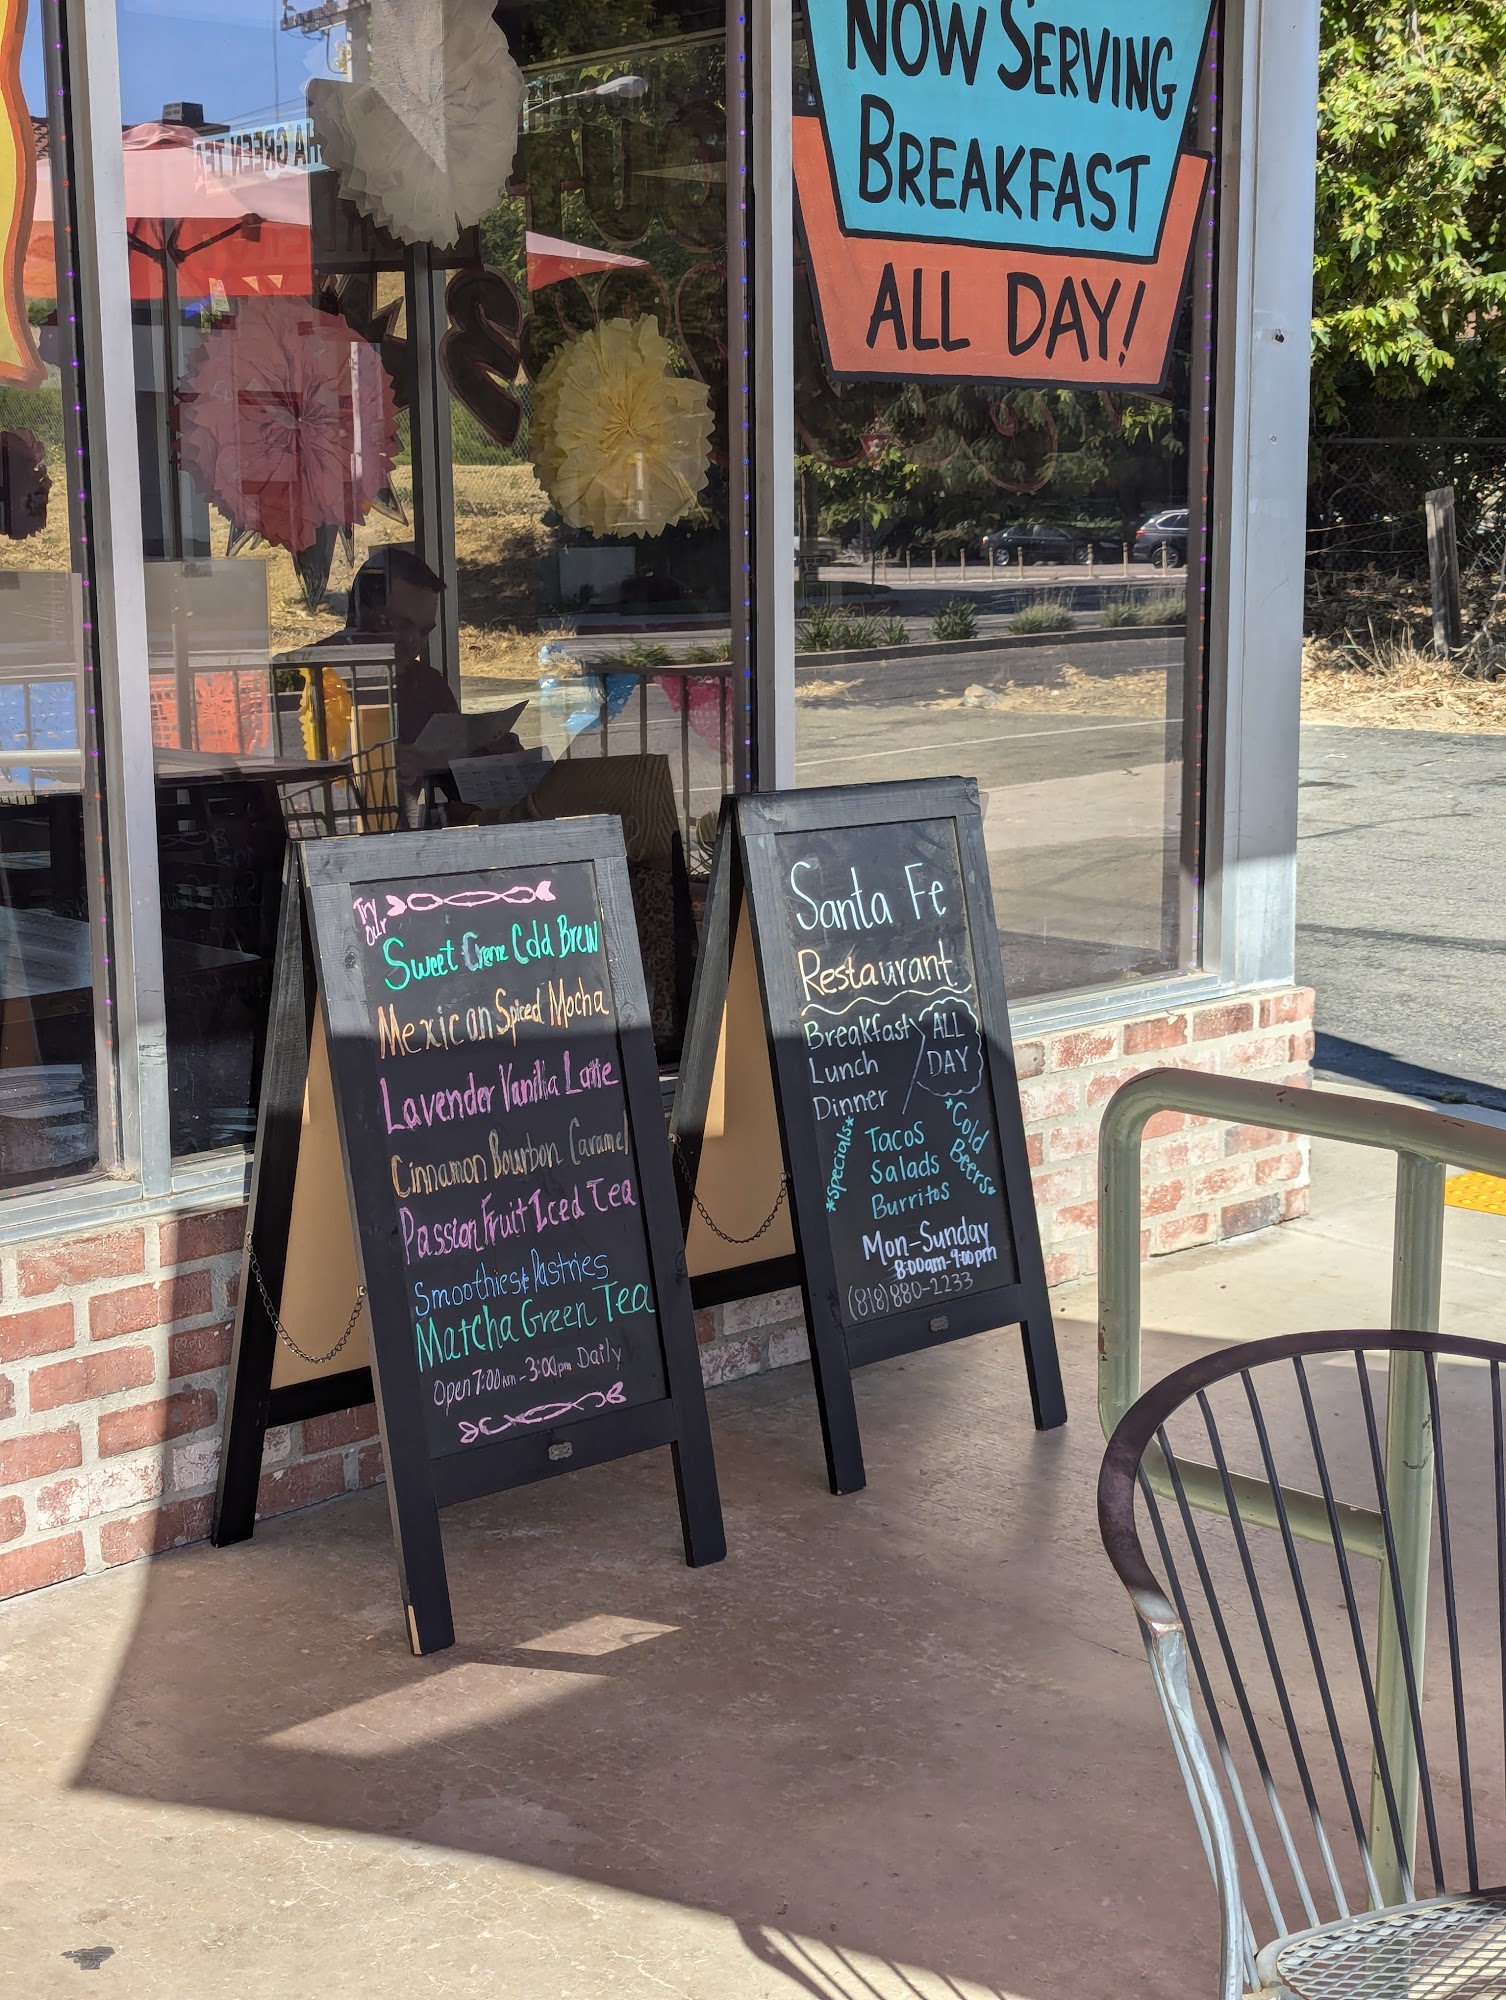 NOW SERVING
BREAKFAST
ALL DAY!
Try
our
Sweet Creme Cold Brew
Mexican Spiced Mocha
Lavender Vanilla Latte
Cinnamon Bourbon Caramel
Passion Fruit Iced Tea
Smoothies & Pastries
Matcha Green Tea
Open 7:00am - 3:00pm Daily
Santa Fe
Restaurant
Breakfast
Lunch
Dinner
ALL
DAY
*Specials*
Tacos
Salads
Burritos
*Cold
Beers*
Mon-Sunday
8:00am-9:00pm
(818) 880-2233
HA GREEN TE